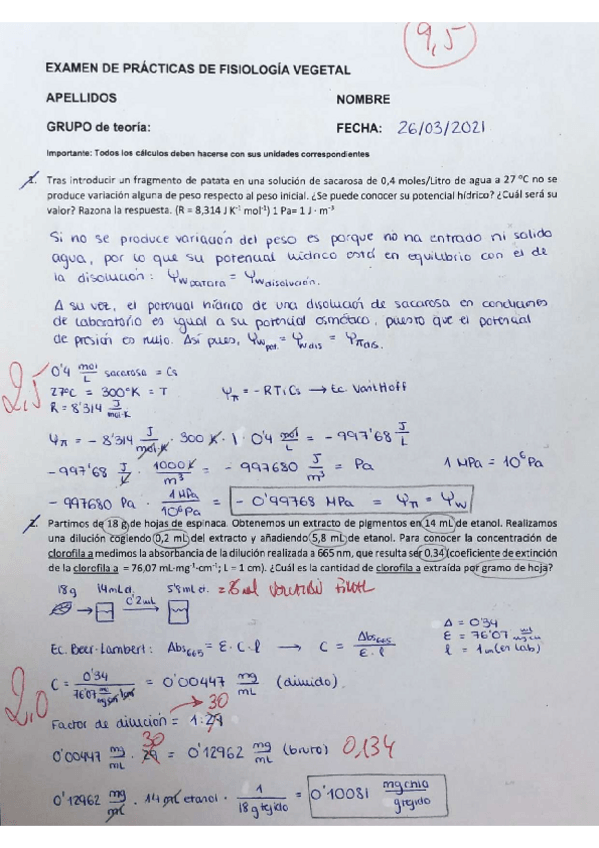 9,5
EXAMEN DE PRÁCTICAS DE FISIOLOGÍA VEGETAL
APELLIDOS NOMBRE
GRUPO de teoría: FECHA: 26/03/2021
Importante: Todos los cálculos deben hacerse con sus unidades correspondientes
1. Tras introducir un fragmento de patata en una solución de sacarosa de 0,4 moles/Litro de agua a 27 ºC no se
produce variación alguna de peso respecto al peso inicial. ¿Se puede conocer su potencial hídrico? ¿Cuál será su
valor? Razona la respuesta. (R = 8,314 J K⁻¹ mol⁻¹) 1 Pa= 1 J · m⁻³
Si no se produce variación del peso es porque no ha entrado ni salido
agua, por lo que su potencial hídrico está en equilibrio con el de
la disolución: Ψw patata = Ψw disolución.
A su vez, el potencial hídrico de una disolución de sacarosa en condiciones
de laboratorio es igual a su potencial osmótico, puesto que el potencial
de presión es nulo. Así pues, Ψw pat. = Ψw dis = Ψπ dis.
2,5
0'4 mol/L sacarosa = Cs
27ºC = 300ºK = T Ψπ = -RTiCs → Ec. Van't Hoff
R = 8'314 J/mol·K
Ψπ = - 8'314 J/mol·K · 300 K · 1 · 0'4 mol/L = - 997'68 J/L
- 997'68 J/L · 1000 L/m³ = - 997680 J/m³ = Pa 1 MPa = 10⁶ Pa
- 997680 Pa · 1 MPa/10⁶ Pa = - 0'99768 MPa = Ψπ = Ψw
2. Partimos de 18 g de hojas de espinaca. Obtenemos un extracto de pigmentos en 14 mL de etanol. Realizamos
una dilución cogiendo 0,2 mL del extracto y añadiendo 5,8 mL de etanol. Para conocer la concentración de
clorofila a medimos la absorbancia de la dilución realizada a 665 nm, que resulta ser 0,34 (coeficiente de extinción
de la clorofila a = 76,07 mL·mg⁻¹·cm⁻¹; L = 1 cm). ¿Cuál es la cantidad de clorofila a extraída por gramo de hoja?
18g 14mL et. 5'8mL et. = 6 ml
0'2mL
A = 0'34
Ec. Beer-Lambert: Abs665 = Ɛ · C · l → C = Abs665/Ɛ · l Ɛ = 76'07 ml/mg·cm
l = 1cm (en lab)
2,0
C = 0'34/76'07 = 0'00447 mg/mL (diluido)
30
Factor de dilución = 1:29
30
0'00447 mg/mL · 29 = 0'12962 mg/mL (bruto) 0,134
0'12962 mg/mL · 14 ml etanol · 1/18 g tejido = 0'10081 mg chla/g tejido